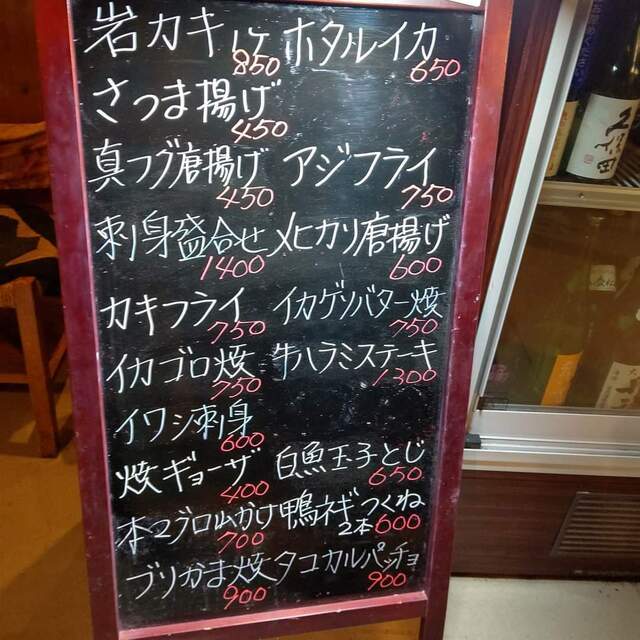 岩カキ 1ケ 850
ホタルイカ 650
さつま揚げ 450
真フグ唐揚げ 450
アジフライ 750
刺身盛合せ 1400
メヒカリ唐揚げ 600
カキフライ 750
イカゲソバター焼 750
イカゴロ焼 750
牛ハラミステーキ 1300
イワシ刺身 600
焼ギョーザ 400
白魚玉子とじ 650
本マグロ山かけ 700
鴨ネギつくね 2本600
ブリかま焼 900
タコカルパッチョ 900
久保田